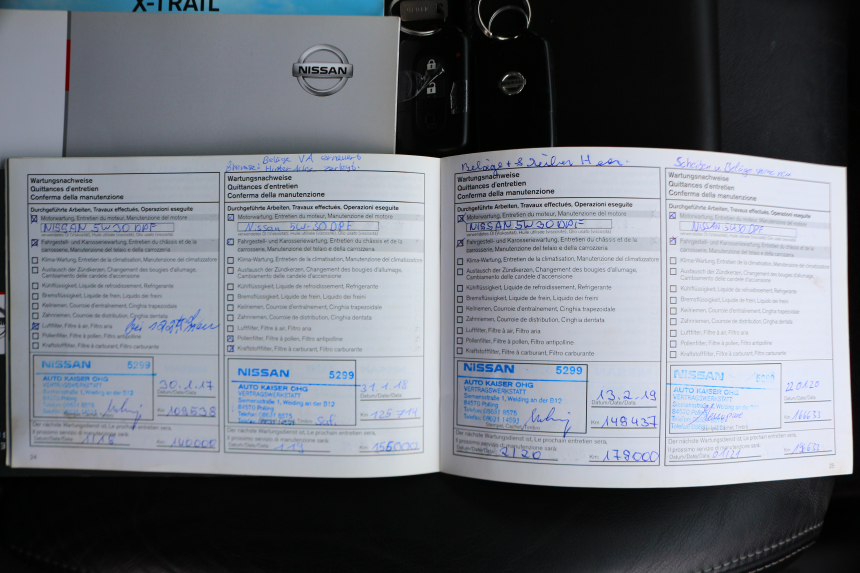 X-TRAIL
NISSAN
Wartungsnachweise
Quittances d'entretien
Conferma della manutenzione
Durchgeführte Arbeiten, Travaux effectués, Operazioni eseguite
Motorwartung, Entretien du moteur, Manutenzione del motore
NISSAN 5W30 DPF
Fahrgestell- und Karosseriewartung, Entretien du châssis et de la
carrosserie, Manutenzione del telaio e della
carrozzeria
Klima-Wartung, Entretien de la climatisation, Manutenzione del climatizzatore
Austausch der Zündkerzen, Changement des bougies d'allumage,
Cambiamento delle candele d'accensione
Kühlflüssigkeit, Liquide de refroidissement, Refrigerante
Bremsflüssigkeit, Liquide de frein, Liquido dei freni
Keilriemen, Courroie d'entraînement, Cinghia trapezoidale
Zahnriemen, Courroie de distribution, Cinghia dentata
Luftfilter, Filtre à air, Filtro aria
Pollenfilter, Filtre à pollen, Filtro antipolline
Kraftstofffilter, Filtre à carburant, Filtro carburante
NISSAN 5299
AUTO KAISER OHG
VERTRAGSWERKSTATT
Siemensstraße 1, Weiding an der B12
84570 Polling
30.1.17
Datum/Date/Data
Km: 109538
Der nächste Wartungsdienst ist, Le prochain entretien sera,
Il prossimo servizio di manutenzione sarà:
Datum/Date/Data: 1118
Km: 140000
34
Beläge VA erneuert
Wartungsnachweise
Quittances d'entretien
Conferma della manutenzione
Durchgeführte Arbeiten, Travaux effectués, Operazioni eseguite
Motorwartung, Entretien du moteur, Manutenzione del motore
Nissan 5W-30 DPF
Fahrgestell- und Karosseriewartung, Entretien du châssis et de la
carrosserie, Manutenzione del telaio e della
carrozzeria
Klima-Wartung, Entretien de la climatisation, Manutenzione del climatizzatore
Austausch der Zündkerzen, Changement des bougies d'allumage,
Cambiamento delle candele d'accensione
Kühlflüssigkeit, Liquide de refroidissement, Refrigerante
Bremsflüssigkeit, Liquide de frein, Liquido dei freni
Keilriemen, Courroie d'entraînement, Cinghia trapezoidale
Zahnriemen, Courroie de distribution, Cinghia dentata
Luftfilter, Filtre à air, Filtro aria
Pollenfilter, Filtre à pollen, Filtro antipolline
Kraftstofffilter, Filtre à carburant, Filtro carburante
NISSAN 5299
AUTO KAISER OHG
VERTRAGSWERKSTATT
Siemensstraße 1, Weiding an der B12
84570 Polling
31.1.18
Datum/Date/Data
Km: 125714
Der nächste Wartungsdienst ist, Le prochain entretien sera,
Il prossimo servizio di manutenzione sarà:
Datum/Date/Data: 119
Km: 155000
Wartungsnachweise
Quittances d'entretien
Conferma della manutenzione
Durchgeführte Arbeiten, Travaux effectués, Operazioni eseguite
Motorwartung, Entretien du moteur, Manutenzione del motore
NISSAN 5W30DPF
Fahrgestell- und Karosseriewartung, Entretien du châssis et de la
carrosserie, Manutenzione del telaio e della
carrozzeria
Klima-Wartung, Entretien de la climatisation, Manutenzione del climatizzatore
Austausch der Zündkerzen, Changement des bougies d'allumage,
Cambiamento delle candele d'accensione
Kühlflüssigkeit, Liquide de refroidissement, Refrigerante
Bremsflüssigkeit, Liquide de frein, Liquido dei freni
Keilriemen, Courroie d'entraînement, Cinghia trapezoidale
Zahnriemen, Courroie de distribution, Cinghia dentata
Luftfilter, Filtre à air, Filtro aria
Pollenfilter, Filtre à pollen, Filtro antipolline
Kraftstofffilter, Filtre à carburant, Filtro carburante
NISSAN 5299
AUTO KAISER OHG
VERTRAGSWERKSTATT
Siemensstraße 1, Weiding an der B12
84570 Polling
13.2.19
Datum/Date/Data
Km: 148437
Der nächste Wartungsdienst ist, Le prochain entretien sera,
Il prossimo servizio di manutenzione sarà:
Datum/Date/Data: 2120
Km: 178000
Wartungsnachweise
Quittances d'entretien
Conferma della manutenzione
Durchgeführte Arbeiten, Travaux effectués, Operazioni eseguite
Motorwartung, Entretien du moteur, Manutenzione del motore
Nissan 5W30 DPF
Fahrgestell- und Karosseriewartung, Entretien du châssis et de la
carrosserie, Manutenzione del telaio e della
carrozzeria
Klima-Wartung, Entretien de la climatisation, Manutenzione del climatizzatore
Austausch der Zündkerzen, Changement des bougies d'allumage,
Cambiamento delle candele d'accensione
Kühlflüssigkeit, Liquide de refroidissement, Refrigerante
Bremsflüssigkeit, Liquide de frein, Liquido dei freni
Keilriemen, Courroie d'entraînement, Cinghia trapezoidale
Zahnriemen, Courroie de distribution, Cinghia dentata
Luftfilter, Filtre à air, Filtro aria
Pollenfilter, Filtre à pollen, Filtro antipolline
Kraftstofffilter, Filtre à carburant, Filtro carburante
NISSAN
AUTO KAISER OHG
VERTRAGSWERKSTATT
Siemensstraße 1, Weiding an der B12
84570 Polling
Datum/Date/Data
Km:
Der nächste Wartungsdienst ist, Le prochain entretien sera,
Il prossimo servizio di manutenzione sarà:
Datum/Date/Data: 01121
Km: